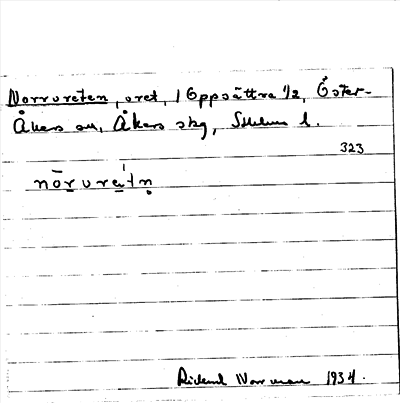 Norrvreten, vret, / Uppsättra 1/2, Öster-
Åkers sn, Åkers skg, Sthlms l.
323
nōrvreitn̥
Rickard Norrman 1934.